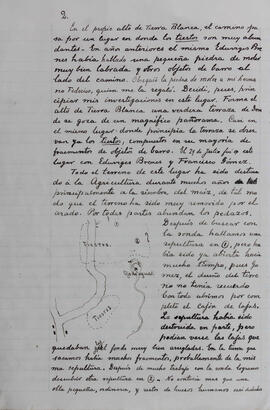 2.
En el propio alto de Tierra Blanca, el camino pa-
sa por un lugar en donde los tiestos son muy abun-
dantes. En años anteriores el mismo Eduviges Bro-
nes había hallado una pequeña piedra de moler
muy bien labrada, y otros objetos de barro al
lado del camino. Obsequió la piedra de moler a mi herma-
no Federico, quien me la regaló. Decidí, pues, prin-
cipiar mis investigaciones en este lugar. Forma el
alto de Tierra Blanca, una verdadera terraza de don-
de se goza de un magnífico panorama. Casi en
el mismo lugar donde principia la terraza se obser-
van ya los tiestos, compuestos en su mayoría de
fragmentos de objetos de barro. El 29 de julio fui a este
lugar con Eduviges Brones y Francisco Gómez.
Todo el terreno de este lugar ha sido destina-
do á la Agricultura durante muchos años
principalmente a la siembra del maíz, de tal mo-
do que el terreno ha sido muy removido por el
arado. Por todas partes abundan los pedazos.
Después de buscar con
la sonda hallamos una
sepultura en ①, pero ha-
bía sido ya abierta hace
mucho tiempo, pues Gó-
mez, el dueño del terre-
no no tenía recuerdo
Con todo abrimos por com-
pleto el cajón de lajas.
La sepultura había sido
destruida en parte, pero
podían verse las lajas que
quedaban al fondo muy bien arregladas. En la tierra que
sacamos había muchos fragmentos, probablemente de la mis-
ma sepultura. Después de mucho trabajo con la sonda logramos
descubrir otra sepultura en ②. No contenía mas que una
olla pequeña, ordinaria, y restos de huesos humanos
Tiestos
Tiestos